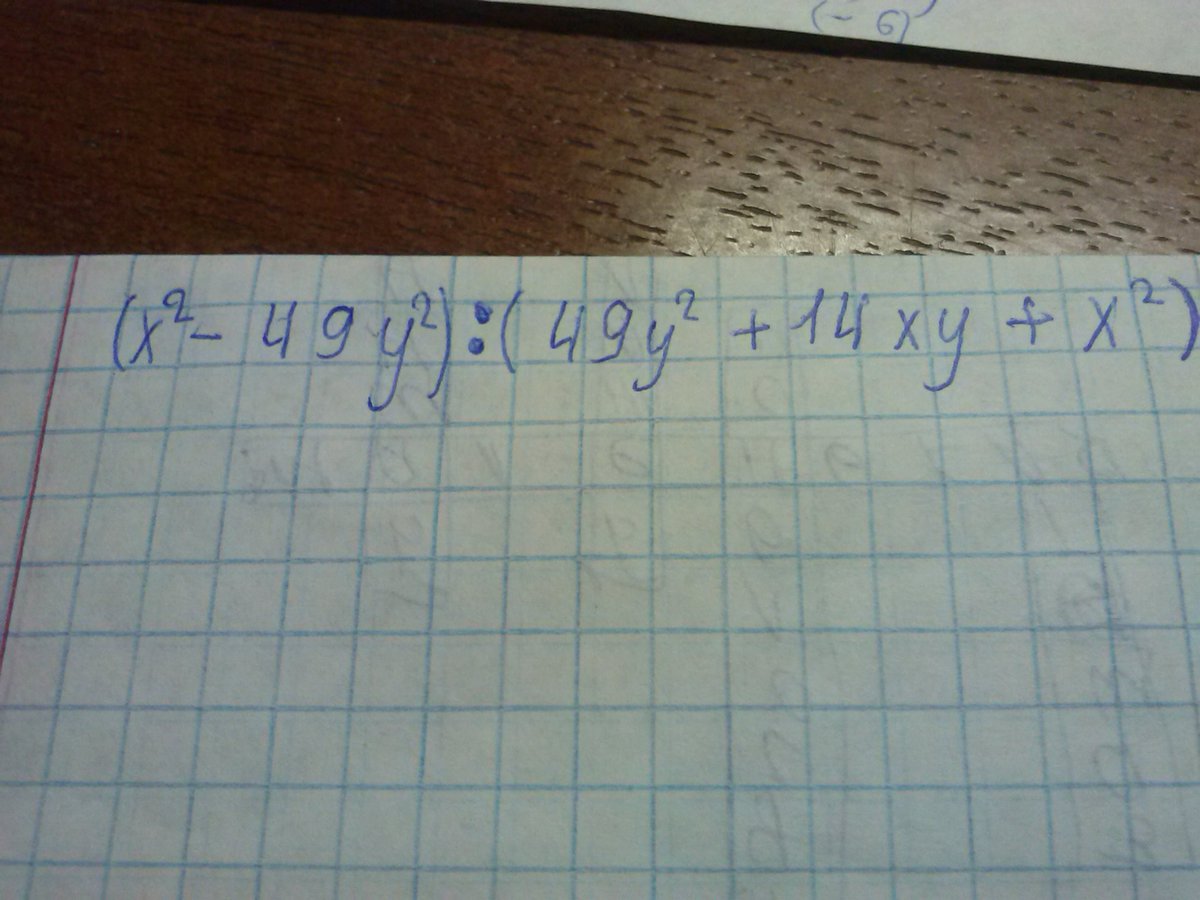 (- 6)
(x² - 49y²) : (49y² + 14xy + x²)